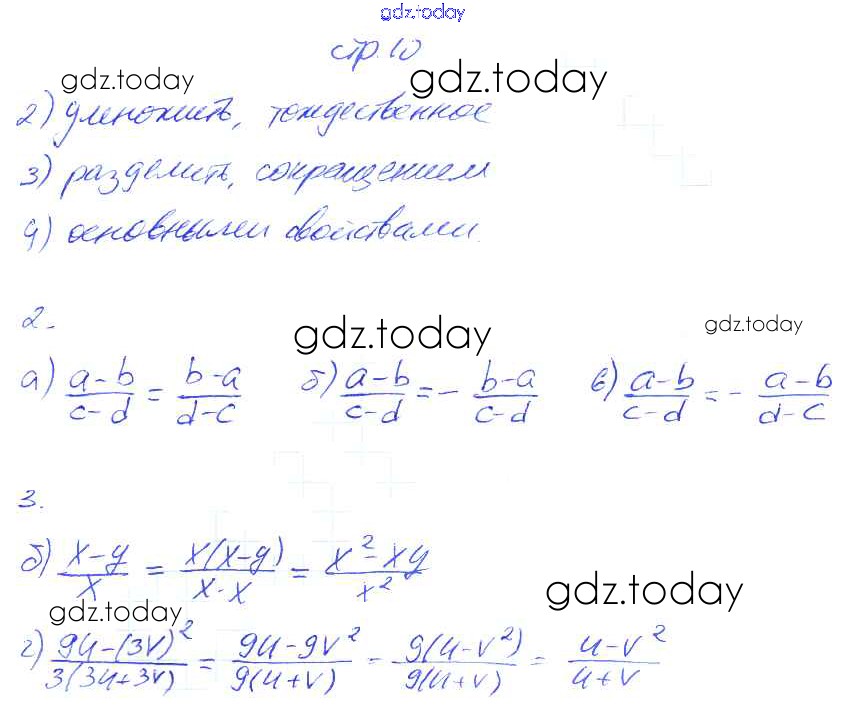 gdz.today
стр. 10
gdz.today gdz.today
2) умножить, тождественное
3) разделить, сокращением
4) основными свойствами.
2.
gdz.today gdz.today
а) (a-b)/(c-d) = (b-a)/(d-c) б) (a-b)/(c-d) = - (b-a)/(c-d) в) (a-b)/(c-d) = - (a-b)/(d-c)
3.
б) (x-y)/x = x(x-y)/(x·x) = (x²-xy)/x²
gdz.today gdz.today
г) (9u-(3v)²)/(3(3u+3v)) = (9u-9v²)/(9(u+v)) = 9(u-v²)/(9(u+v)) = (u-v²)/(u+v)